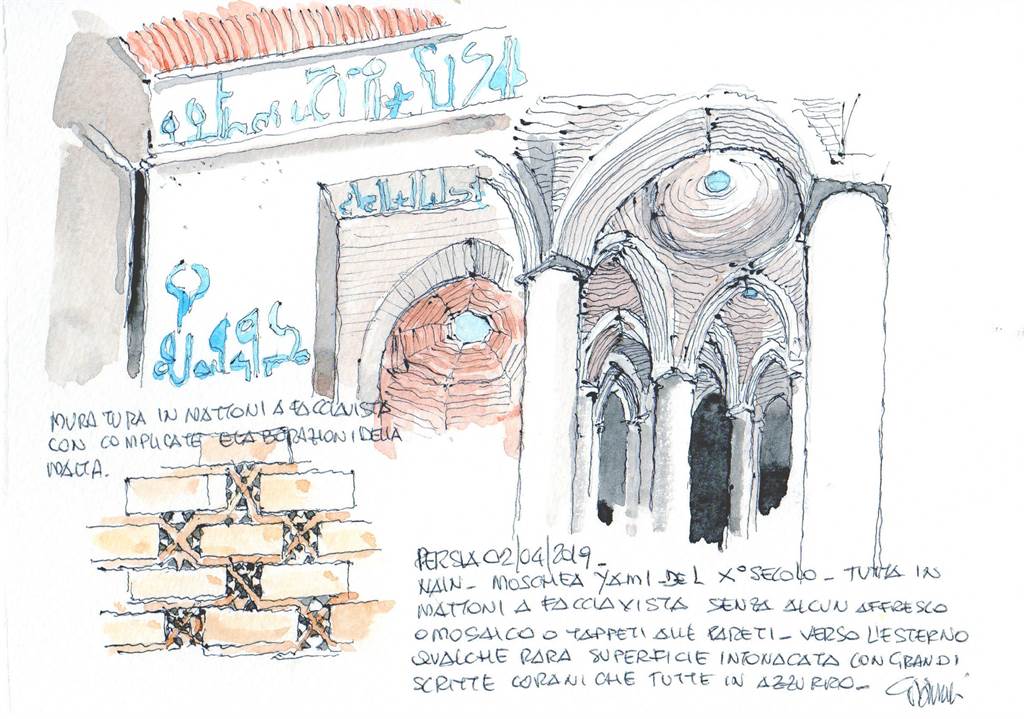 MURATURA IN MATTONI A FACCIAVISTA
CON COMPLICATE ELABORAZIONI DELLA
MALTA.
PERSIA 02/04/2019_
NAIN_ MOSCHEA YAMI DEL X° SECOLO_ TUTTA IN
MATTONI A FACCIAVISTA SENZA ALCUN AFFRESCO
O MOSAICO O TAPPETI ALLE PARETI_ VERSO L'ESTERNO
QUALCHE RARA SUPERFICIE INTONACATA CON GRANDI
SCRITTE CORANICHE TUTTE IN AZZURRO_